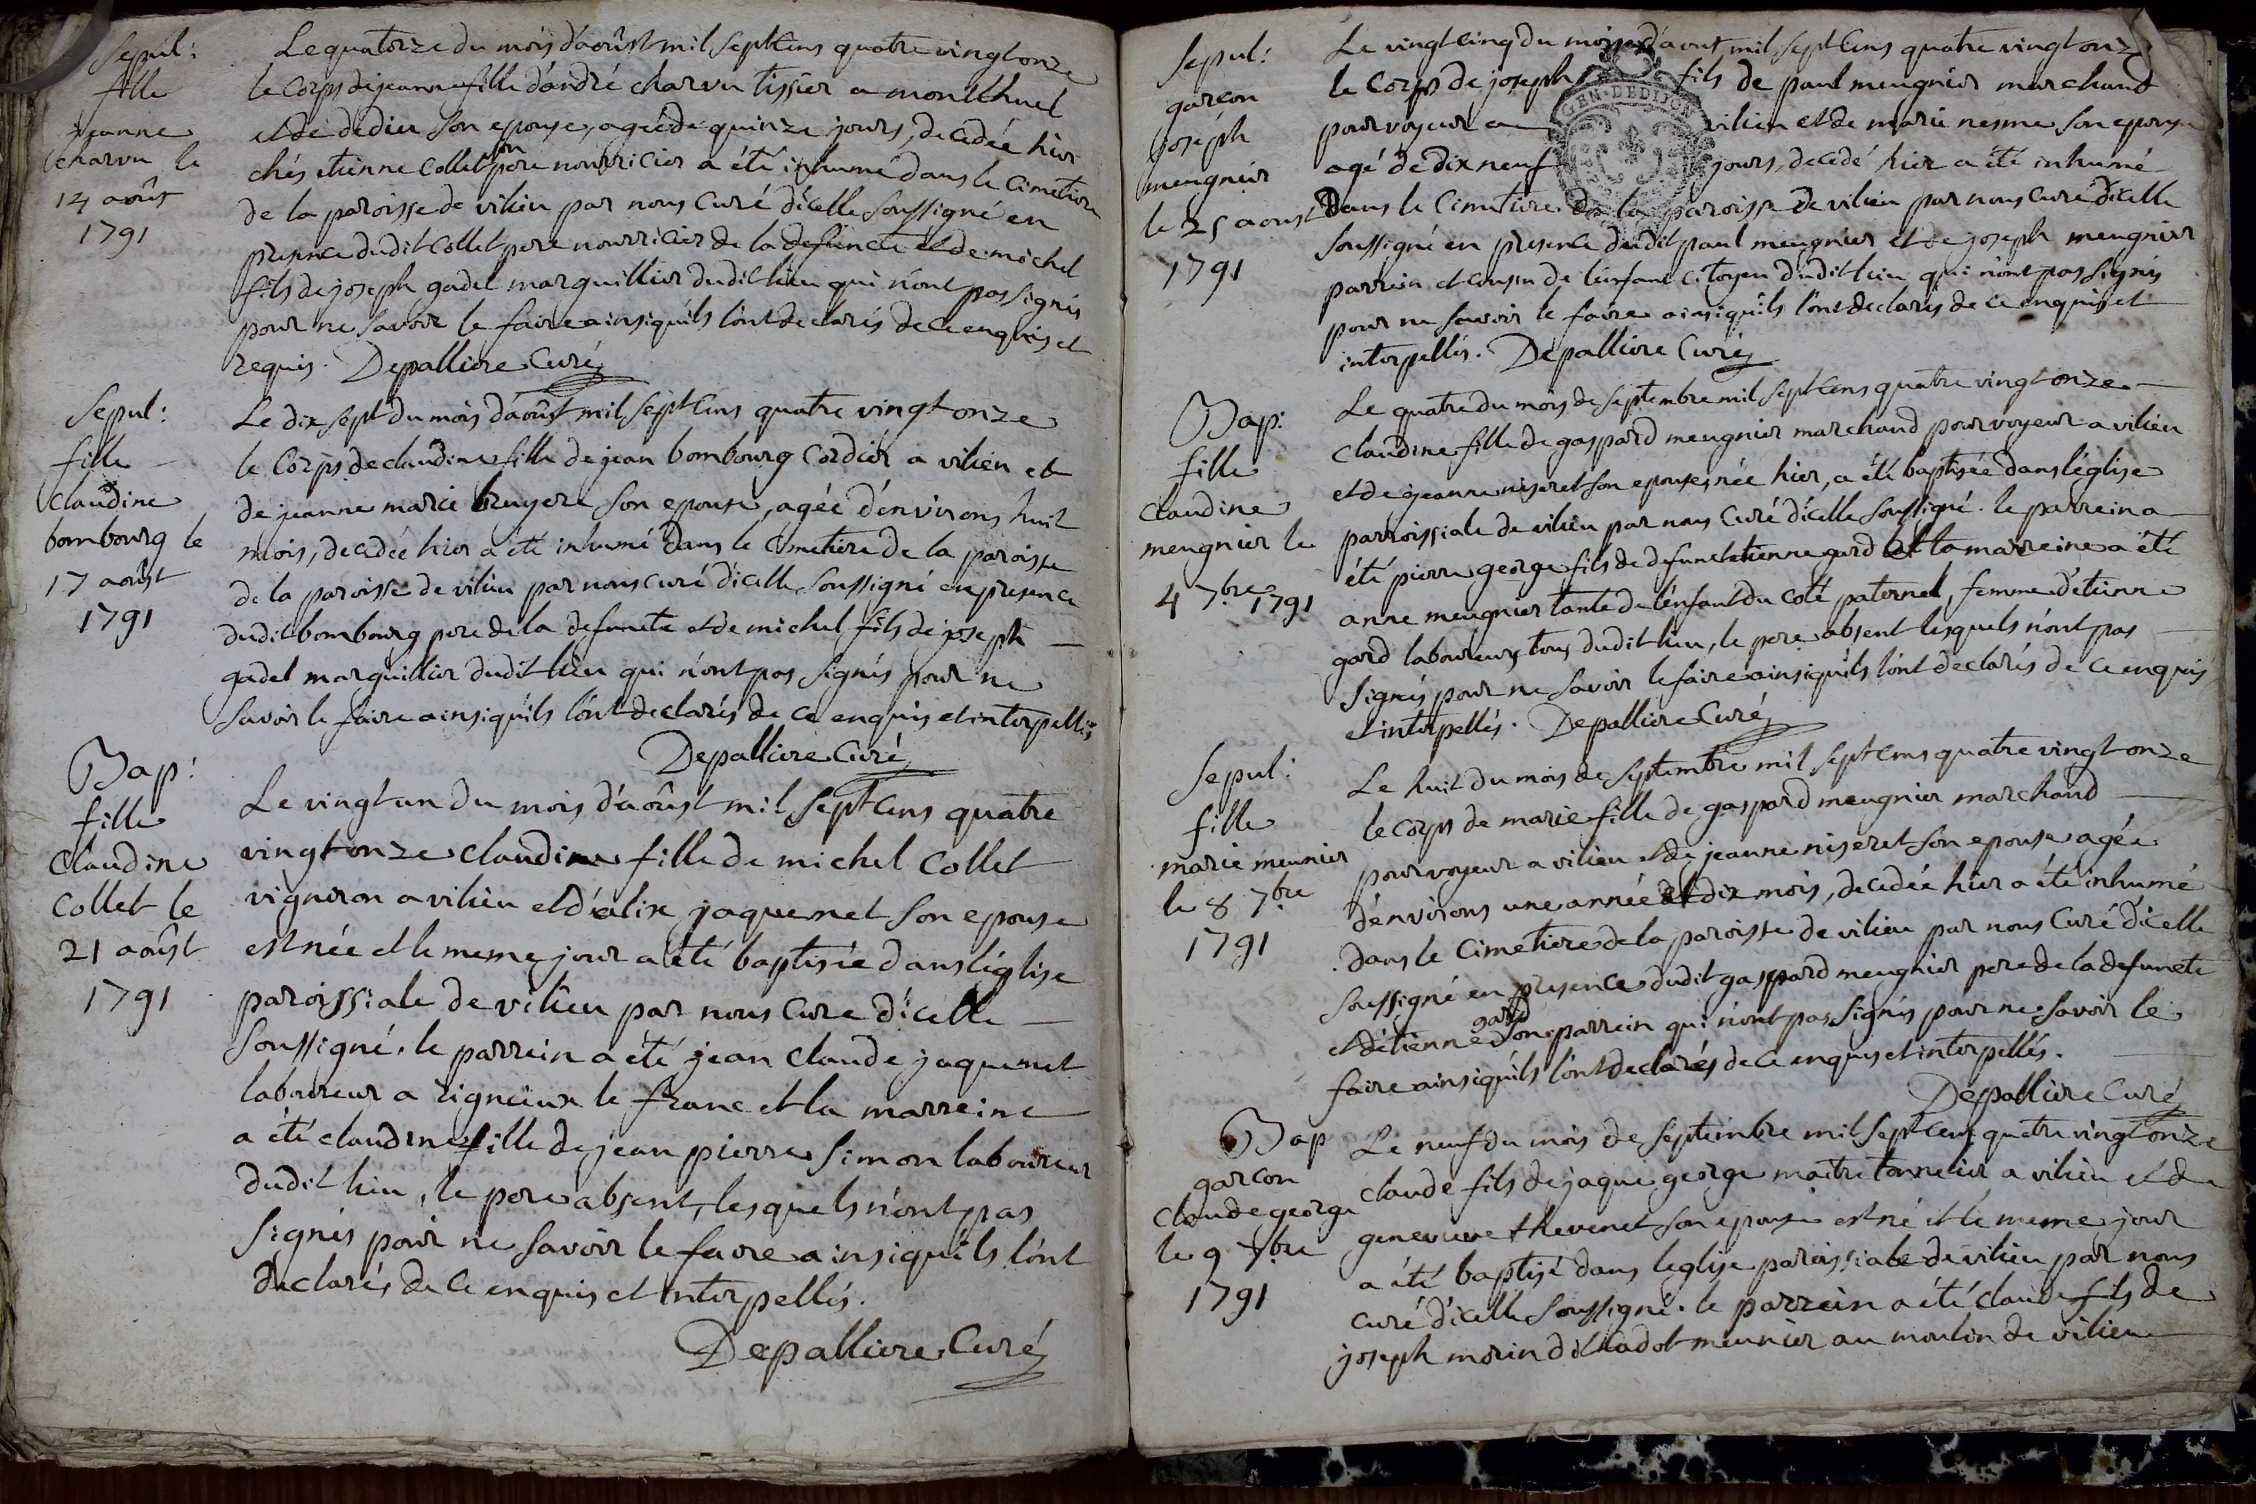 Sepul:
fille
jeanne
charvu le
14 août
1791
Le quatorze du mois d'aoûst mil sept cens quatre vingt onze
le corps de jeanne fille d'andré charvu tissier a montlhuel
et de dedieu son epouse, agée de quinze jours, decedée hier
chés etienne Collet son pere nourricier a été inhumé dans le Cimetiere
de la paroisse de vilieu par nous Curé d'icelle soussigné en
presence dudit Collet pere nourricier de la defuncte et de michel
fils de joseph gadel marguillier dudit lieu qui n'ont pas signés
pour ne savoir le faire ainsi quils l'ont declarés de ce enquis et
requis. Depalliere Curé
Sepul:
fille
claudine
bombourg le
17 août
1791
Le dix sept du mois d'aoûst mil sept cens quatre vingt onze
le Corps de claudine fille de jean bombourg Cordier a vilieu et
de jeanne marie bruyere son epouse, agée d'environs huit
mois, decedée hier a été inhumé dans le cimetiere de la paroisse
de la paroisse de vilieu par nous curé d'icelle soussigné en presence
dudit bombourg pere de la defuncte et de michel fils de joseph
gadel marguillier dudit lieu qui n'ont pas signés pour ne
savoir le faire ainsi quils l'ont declarés de ce enquis et interpellés
Depalliere Curé
Bap:
fille
Claudine
Collet le
21 août
1791
Le vingt un du mois d'aoûst mil sept cens quatre
vingt onze claudine fille de michel Collet
vigneron a vilieu et d'alix jaquemet son epouse
est née et le meme jour a été baptisée dans l'église
paroissiale de vilieu par nous Cure d'icelle
Soussigné. le parrein a été jean Claude jaquemet
laboureur a rigneüux le franc et la marreine
a été claudine fille de jean pierre simon laboureur
dudit lieu, le pere absent, lesquels n'ont pas
signés pour ne savoir le faire ainsi quils l'ont
declarés de ce enquis et interpellés.
Depalliere Curé
Sepul:
garcon
joseph
meugnier
le 25 aoust
1791
Le vingt cinq du mois d'aout mil sept cens quatre vingt onze
le Corps de joseph fils de paul meugnier marchand
pourvoyeur a vilieu et de marie nesme son epouse
agé de dix neuf jours, decedé hier a été inhumé
Dans le Cimetiere de la paroisse de vilieu par nous curé d'icelle
soussigné en presence dudit paul meugnier et de joseph meugnier
parrein et cousin de l'enfant citoyen dudit lieu qui n'ont pas signés
pour ne savoir le faire ainsi quils l'ont declarés de ce enquis et
interpellés. Depalliere Curé
GEN. DE DIJON
Bap:
fille
Claudine
meugnier le
4 7bre 1791
Le quatre du mois de septembre mil sept cens quatre vingt onze
claudine fille de gaspard meugnier marchand pourvoyeur a vilieu
et de jeanne niseret son epouse, née hier, a été baptisée dans l'église
parroissiale de vilieu par nous Curé d'icelle soussigné. le parrein a
été pierre george fils de defunct etienne gard et la marreine a été
anne meugnier tante de l'enfant du coté paternel, femme d'etienne
gard laboureur, tous dudit lieu, le pere absent lesquels n'ont pas
signés pour ne savoir le faire ainsi quils l'ont declarés de ce enquis
et interpellés. Depalliere Curé
Sepul:
fille
marie meunier
le 8 7bre
1791
Le huit du mois de septembre mil sept cens quatre vingt onze
le corps de marie fille de gaspard meugnier marchand
pourvoyeur a vilieu et de jeanne niseret son epouse agée
d'environs une année et dix mois, decedée hier a été inhumé
dans le Cimetiere de la paroisse de vilieu par nous Curé d'icelle
soussigné en presence dudit gaspard meugnier pere de la defuncte
et d'etienne gard son parrein qui n'ont pas signés pour ne savoir le
faire ainsi quils l'ont declarés de ce enquis et interpellés.
Depalliere Curé
Bap
garcon
Claude george
le 9 7bre
1791
Le neuf du mois de septembre mil sept cens quatre vingt onze
claude fils de jaque george maitre tonnelier a vilieu et de
genevieve thevenet son epouse est né et le meme jour
a été baptisé dans l'eglise paroissiale de vilieu par nous
curé d'icelle soussigné. le parrein a été claude fils de
joseph morin dit Cadot meunier au moulin de vilieu